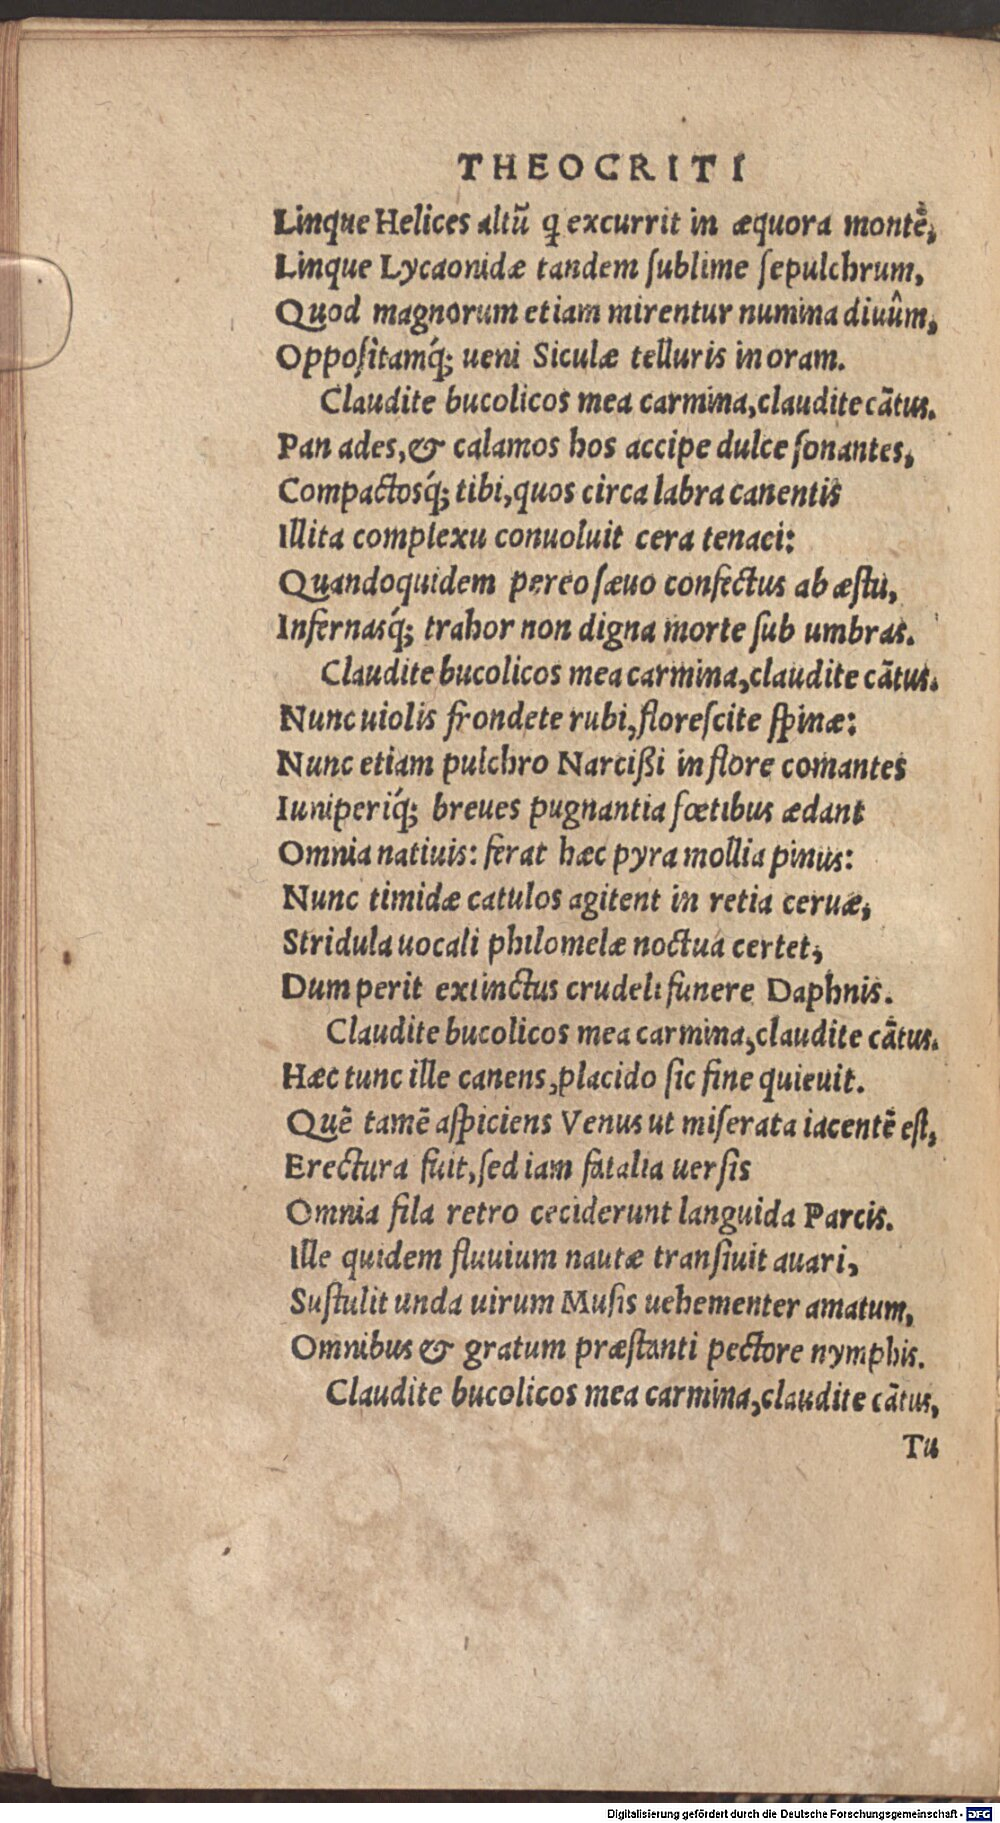 THEOCRITI
Linque Helices altũ q excurrit in æquora montẽ,
Linque Lycaonidæ tandem ſublime ſepulchrum,
Quod magnorum etiam mirentur numina diuûm,
Oppoſitamq́; ueni Siculæ telluris in oram.
Claudite bucolicos mea carmina, claudite cãtus.
Pan ades, & calamos hos accipe dulce ſonantes,
Compactosq́; tibi, quos circa labra canentis
Illita complexu conuoluit cera tenaci:
Quandoquidem pereo ſæuo confectus ab æſtu,
Infernasq́; trahor non digna morte ſub umbras.
Claudite bucolicos mea carmina, claudite cãtus.
Nunc uiolis frondete rubi, floreſcite ſpinæ:
Nunc etiam pulchro Narcißi in flore comantes
Iuniperiq́; breues pugnantia fœtibus ædant
Omnia natiuis: ferat hæc pyra mollia pinus:
Nunc timidæ catulos agitent in retia ceruæ,
Stridula uocali philomelæ noctua certet,
Dum perit extinctus crudeli funere Daphnis.
Claudite bucolicos mea carmina, claudite cãtus.
Hæc tunc ille canens, placido ſic fine quieuit.
Quẽ tamẽ aſpiciens Venus ut miſerata iacentẽ eſt,
Erectura fuit, ſed iam fatalia uerſis
Omnia fila retro ceciderunt languida Parcis.
Ille quidem fluuium nautæ tranſiuit auari,
Suſtulit unda uirum Muſis uehementer amatum,
Omnibus & gratum præſtanti pectore nymphis.
Claudite bucolicos mea carmina, claudite cãtus,
Tu
Digitalisierung gefördert durch die Deutsche Forschungsgemeinschaft - DFG